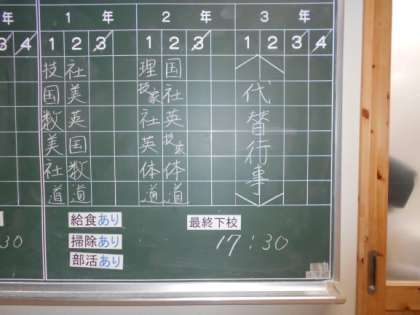 1 年 2 年 3 年
3 4 1 2 3 1 2 3 1 2 3 4
技 社 理 国
国 美 技家 社 代
数 英 社 英 替
美 国 英 技家 行
社 数 体 体 事
道 道 道 道
給食あり 最終下校
30 掃除あり 17:30
部活あり